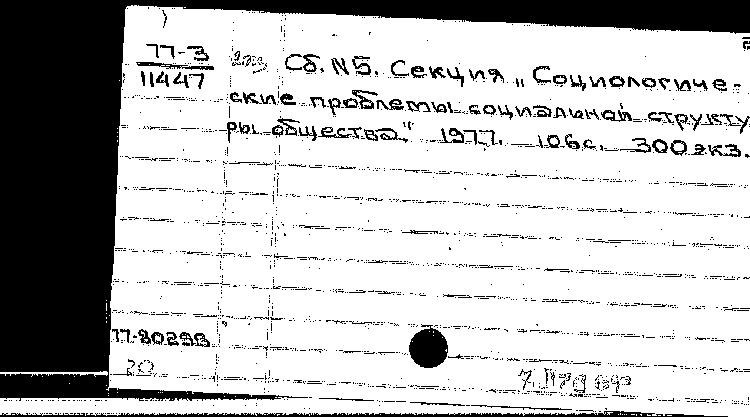 77-3
11447
Сб. №5. Секция „Социологиче-
ские проблемы социальной структу
ры общества." 1977. 106с. 300 экз.
77-80298
20